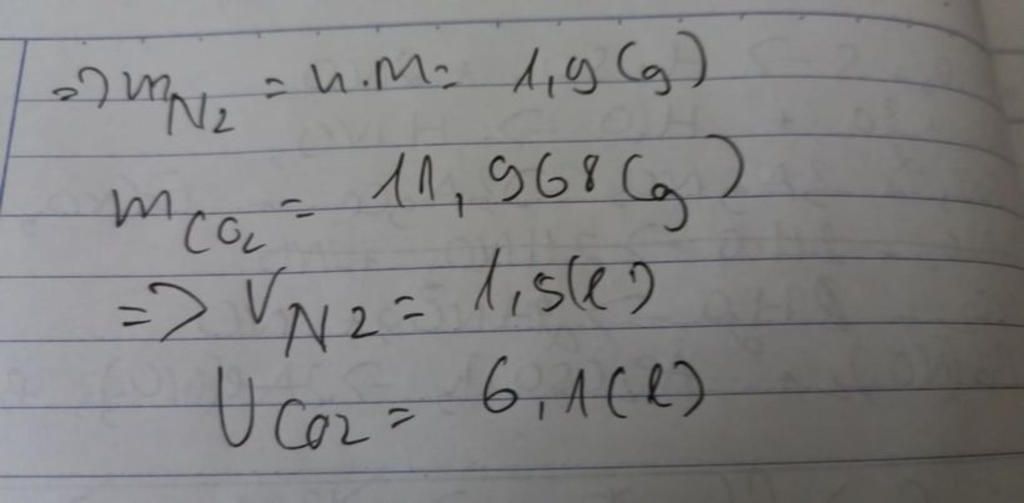 => m N2 = n.M = 1,9 (g)
m CO2 = 11,968 (g)
=> V N2 = 1,5 (l)
V CO2 = 6,1 (l)